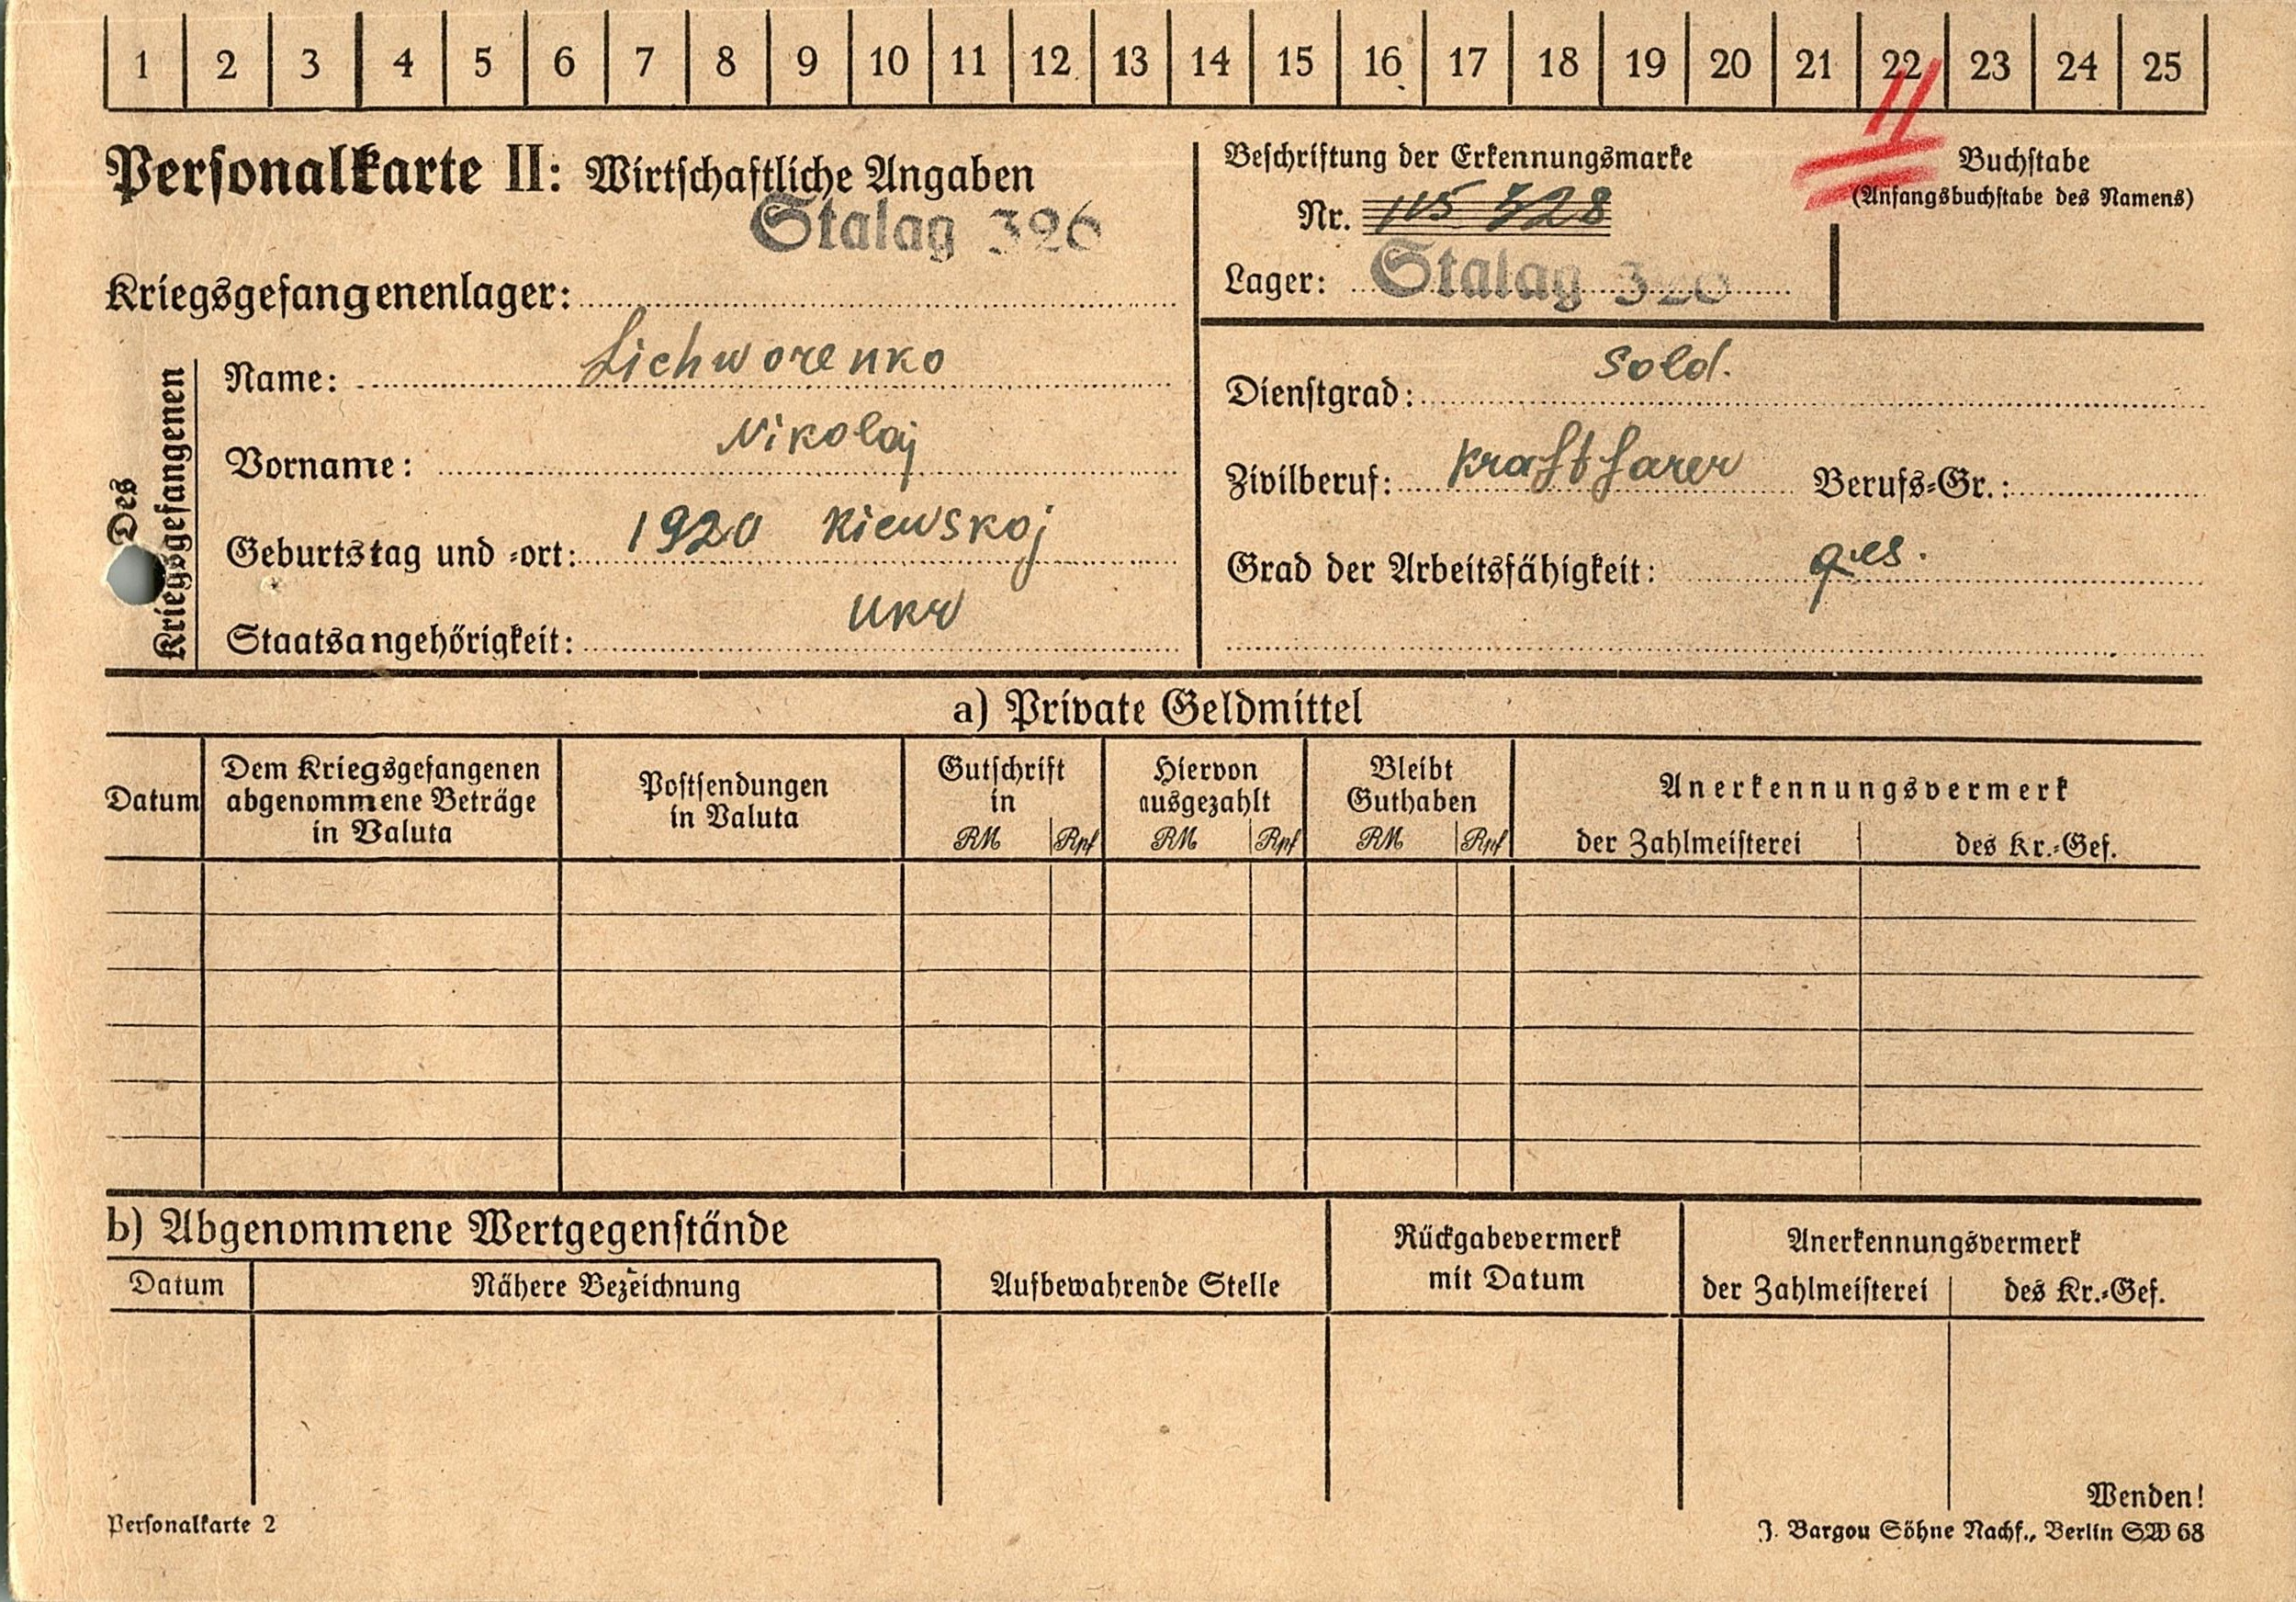 1 2 3 4 5 6 7 8 9 10 11 12 13 14 15 16 17 18 19 20 21 22 23 24 25
Personalkarte II: Wirtschaftliche Angaben
Stalag 326
Kriegsgefangenenlager:
Beschriftung der Erkennungsmarke
Nr. 115 328
Lager: Stalag 326
Buchstabe
(Anfangsbuchstabe des Namens)
Des
Kriegsgefangenen
Name: Lichworenko
Vorname: Nikolaj
Geburtstag und -ort: 1920 Kiewskoj
Staatsangehörigkeit: Ukr
Dienstgrad: Sold.
Zivilberuf: Kraftfarer Berufs-Gr.:
Grad der Arbeitsfähigkeit: ges.
a) Private Geldmittel
Datum
Dem Kriegsgefangenen
abgenommene Beträge
in Valuta
Postsendungen
in Valuta
Gutschrift
in
RM Rpf
Hiervon
ausgezahlt
RM Rpf
Bleibt
Guthaben
RM Rpf
Anerkennungsvermerk
der Zahlmeisterei des Kr.-Gef.
b) Abgenommene Wertgegenstände
Datum Nähere Bezeichnung Aufbewahrende Stelle
Rückgabevermerk
mit Datum
Anerkennungsvermerk
der Zahlmeisterei des Kr.-Gef.
Wenden!
Personalkarte 2
J. Bargou Söhne Nachf., Berlin SW 68